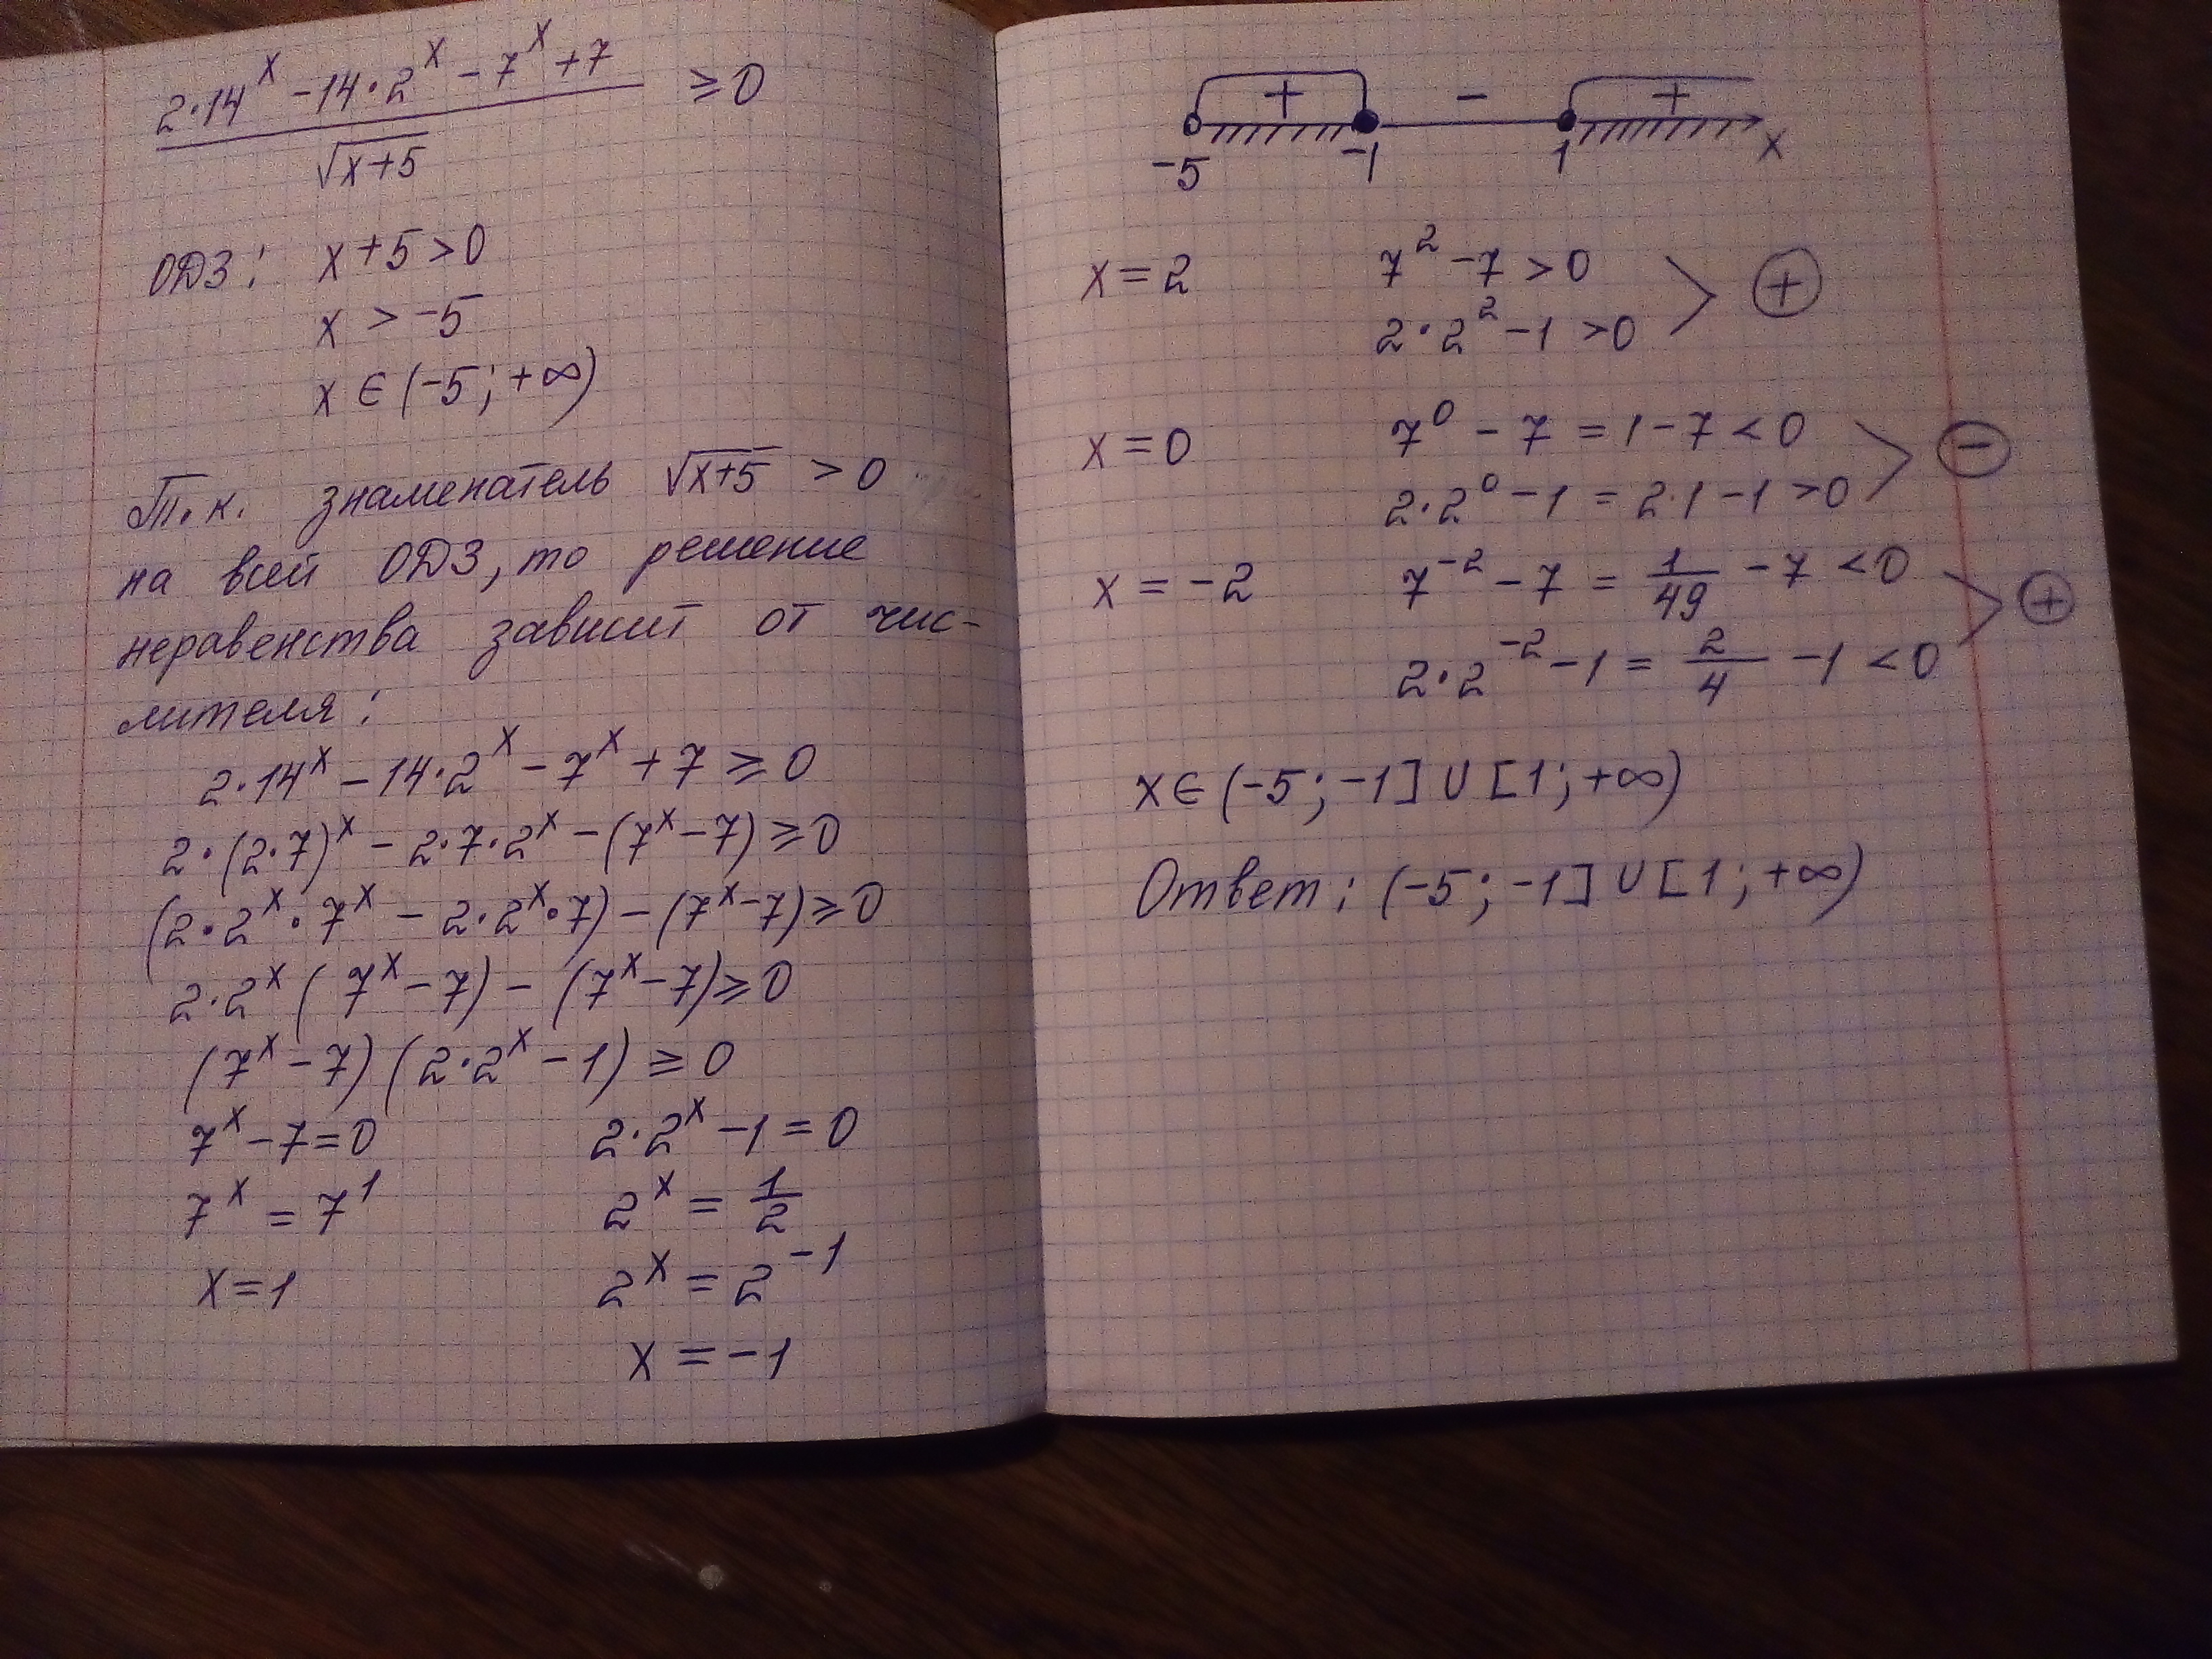 (2·14^x − 14·2^x − 7^x + 7)/√(x+5) ≥ 0
ОДЗ: x + 5 > 0
x > −5
x ∈ (−5; +∞)
Т.к. знаменатель √(x+5) > 0
на всей ОДЗ, то решение
неравенства зависит от чис-
лителя:
2·14^x − 14·2^x − 7^x + 7 ≥ 0
2·(2·7)^x − 2·7·2^x − (7^x − 7) ≥ 0
(2·2^x·7^x − 2·2^x·7) − (7^x − 7) ≥ 0
2·2^x (7^x − 7) − (7^x − 7) ≥ 0
(7^x − 7)(2·2^x − 1) ≥ 0
7^x − 7 = 0   2·2^x − 1 = 0
7^x = 7^1   2^x = 1/2
x = 1   2^x = 2^−1
x = −1
+ − +
−5 −1 1 x
x = 2   7^2 − 7 > 0
2·2^2 − 1 > 0   +
x = 0   7^0 − 7 = 1 − 7 < 0
2·2^0 − 1 = 2·1 − 1 > 0   −
x = −2   7^−2 − 7 = 1/49 − 7 < 0
2·2^−2 − 1 = 2/4 − 1 < 0   +
x ∈ (−5; −1] ∪ [1; +∞)
Ответ: (−5; −1] ∪ [1; +∞)